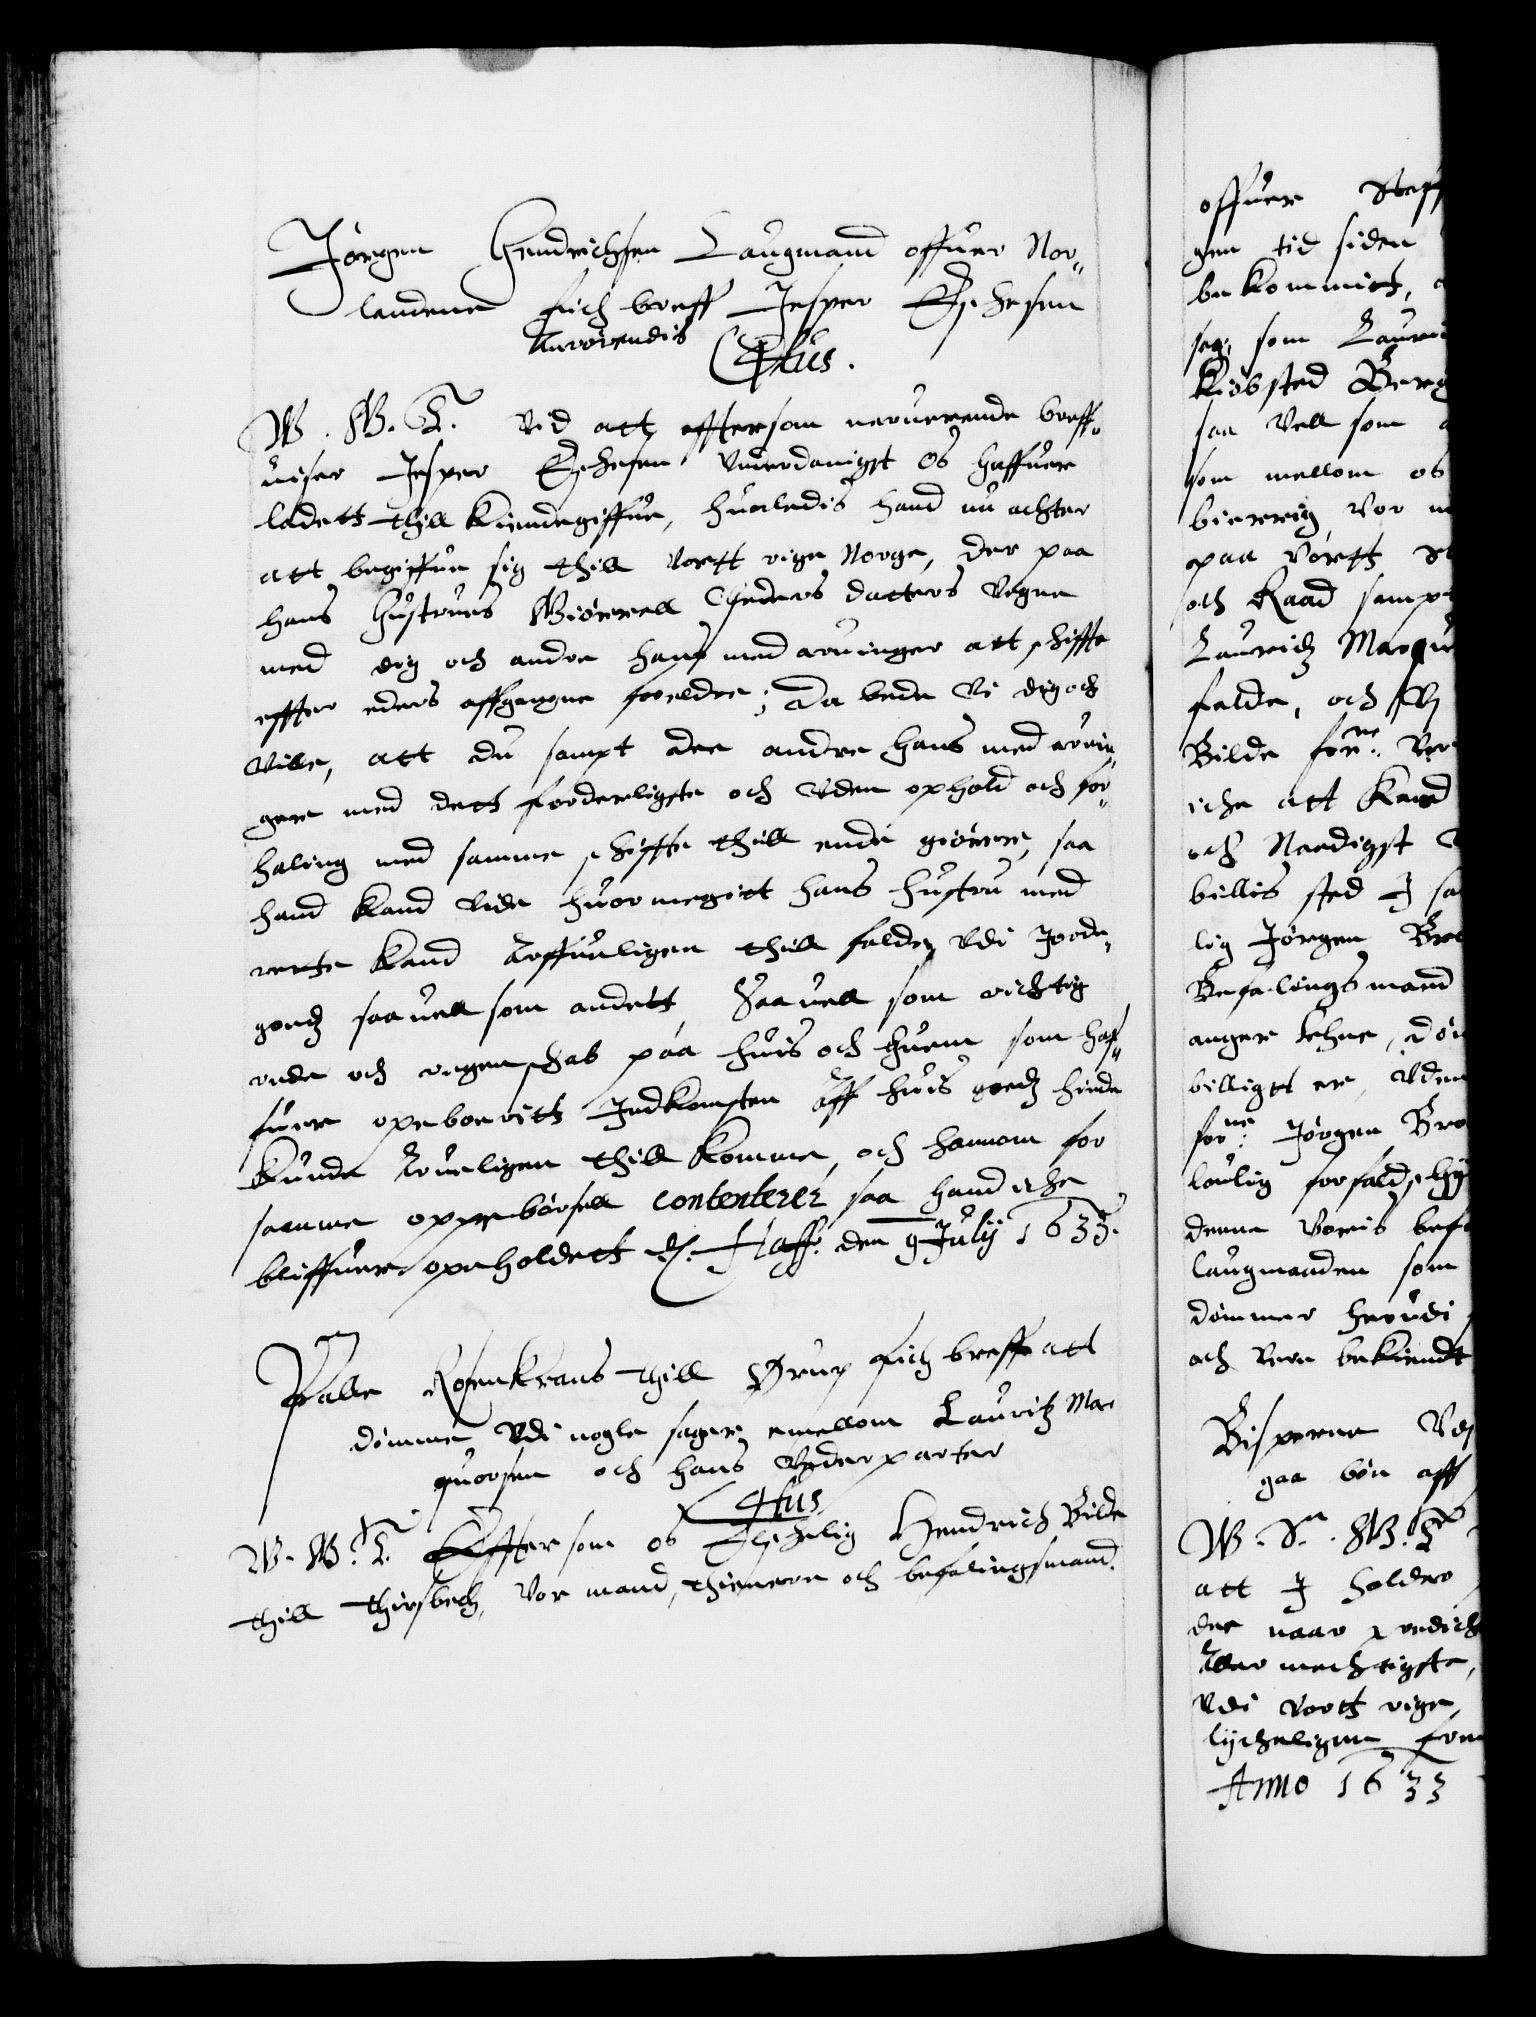 Jørgen Hendrichsen Laugmand offuer Nor-
landene fich breff Jesper
Anrørendis
C4tus.
W. G. T. Vid att effterson nerverende breff-
uiser Jesper Vnderdanigst Os haffuer
ladett thill kiendegiffue, huorledis hand nu achter
att begiffue sig thill vortt rige Norge, der paa
hans Hustrues datters Vegne
med dig och andre hans med aruinger att schiffte
effter eders affgangne foreldre; Da bede Vi dig och
Ville, att du sampt de andre hans med aruin-
gere med dett forderligste och Vden ophold och for-
haling med samme schiffte thill ende giørre, saa
hand kand Vide huor megitt hans hustru med
rette kand Arffueligen thill falde, Vdi Jorde-
goedz saauell som andett, Saa uell som richtig
rede och regenschab paa huis och huem som haf-
fuer opeboeritt Jndkomsten Aff huis goedz hinde
kunde Arueligen thill komme, och hannom for
samme oppebørsell contenterer saa hand iche
bliffuer opeholdett Haff: den 9 July 1633.
Palle Rosenkrans thill Ørup fich breffe att
dømme Vdi nogle sager emellom Lauritz Mar
quorsen och hans Vederparter
C4tus
W. G. T. Effter som os Elschelig Hendrich Bilde
thill Thirsbech, Vor mand, thienere och befalingsmand
offuer Staff
gen tid siden
bekommitt,
sag, som Lauri
Kiøbsted Berg
saa Vell som
som mellom os
bierrig Vor
paa Vortt
och Raad samp
Lauridz Marqu
falde, och
Bilde forne: Ver
iche att kand
och Naadigst
billig sted J sa
lig Jørgen Bro
Befalingsmand
anger lehne, døm
billigt er, Vden
forne: Jørgen Bro
loulig forfald,
denne Voris befa
laugmanden som
dømmer herudi
och Vere bekiendt
Bisperne Vdj
gaa bøn aff
W. S. G. T.
att J holder
der naar predich
Aller mechtigste,
Vdi Vortt rige
lycheligen from
Anno 1633